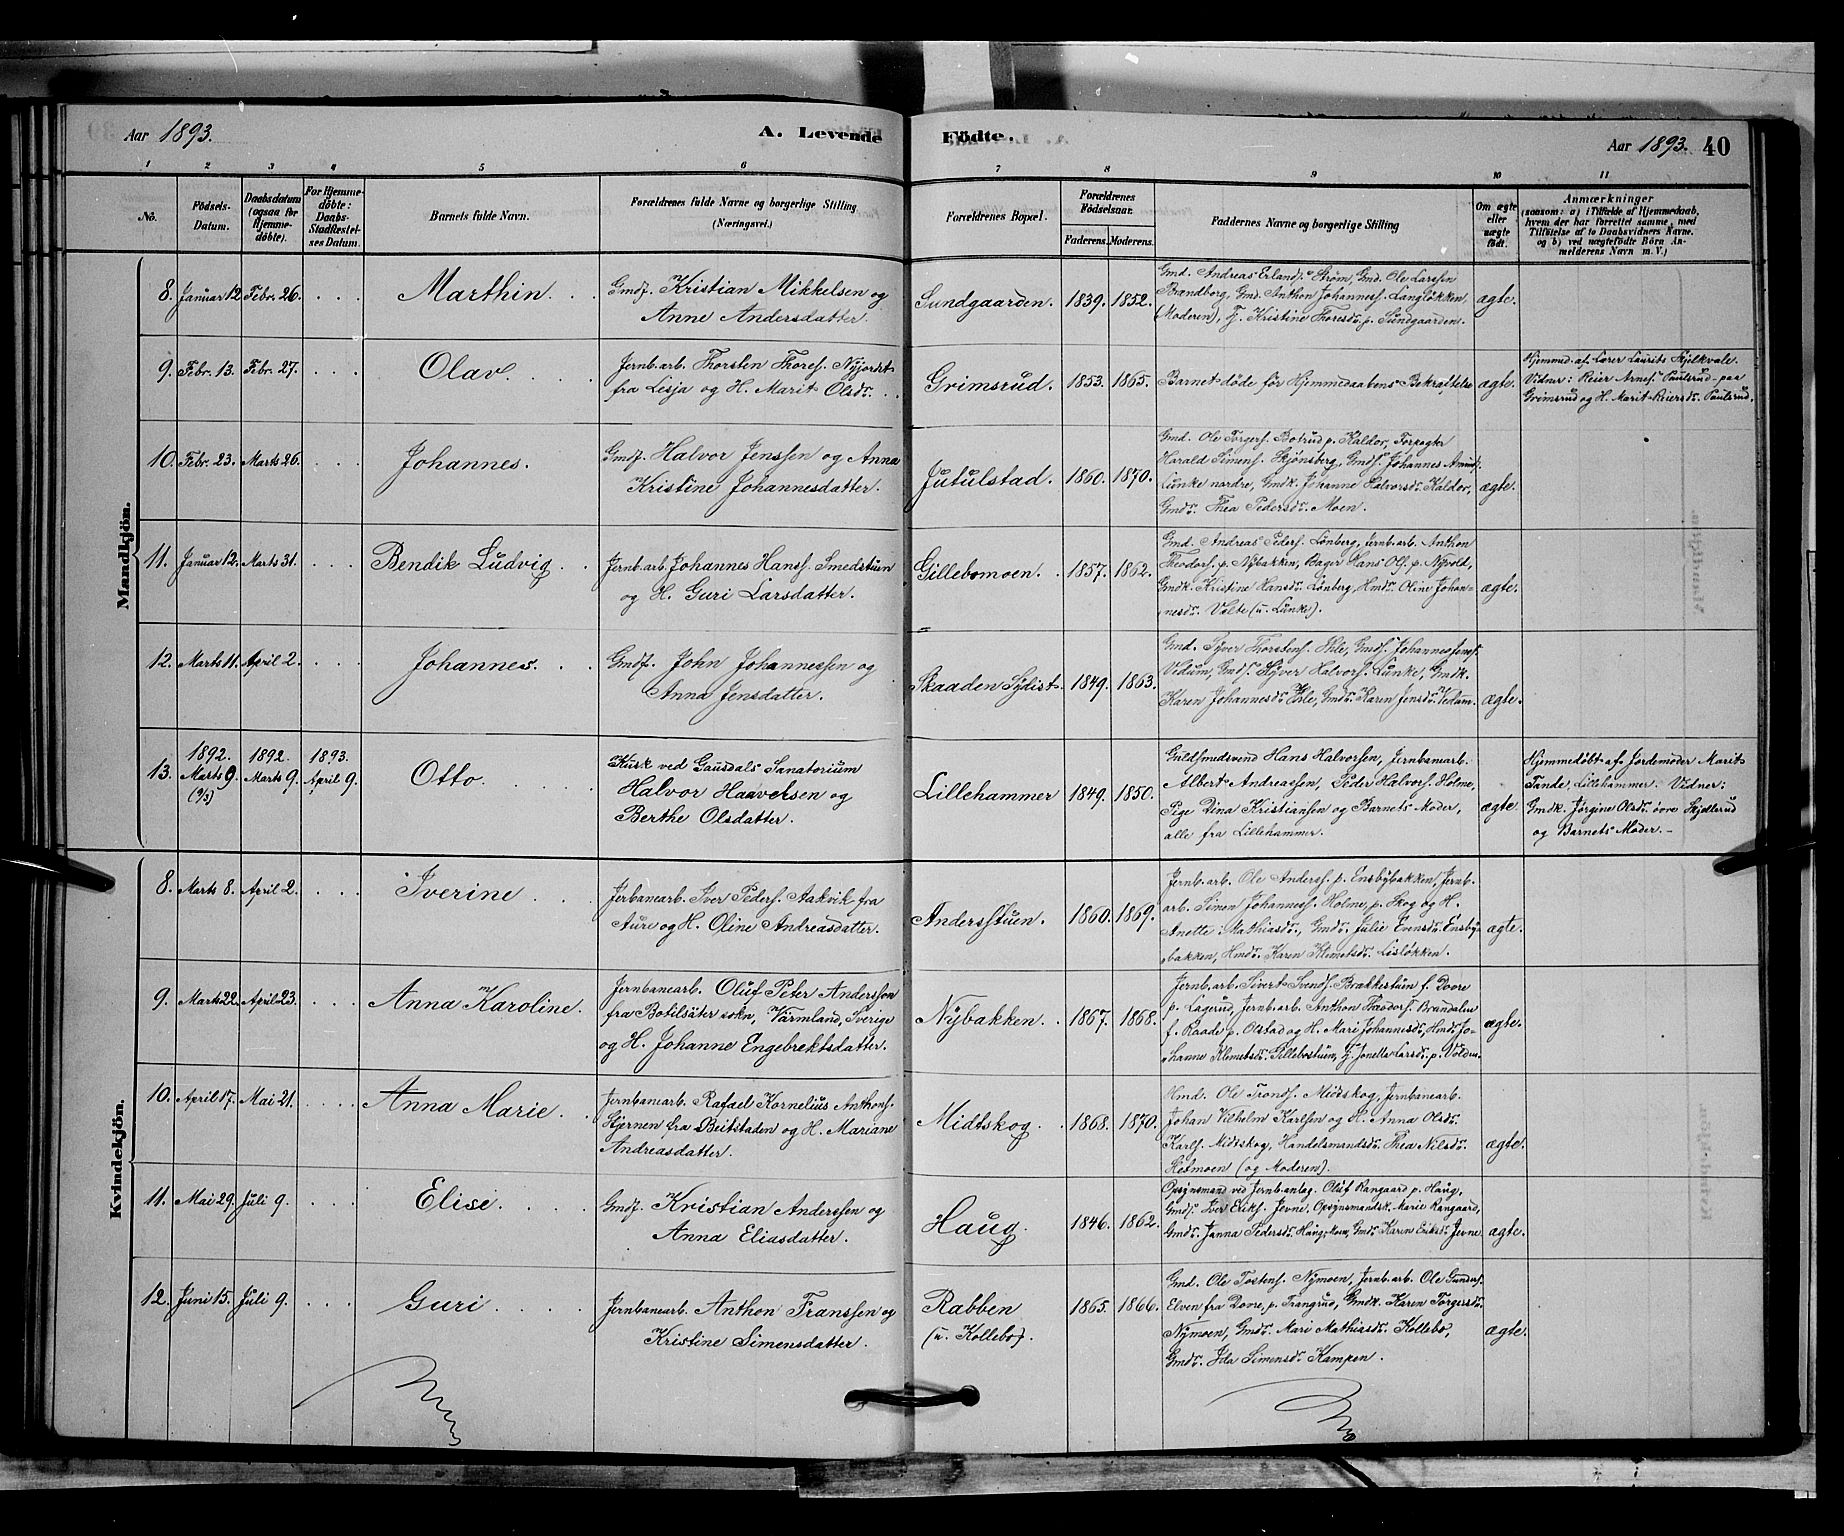 Aar 1893.
A. Levende Fødte.
Aar 1893. 40
1 2 3 4 5 6 7 8 9 10 11
No.
Födsels-Datum.
Daabsdatum (ogsaa for Hjemmedöbte).
For Hjemmedöbte: Daabs-Stadfæstelses Datum.
Barnets fulde Navn.
Forældrenes fulde Navne og borgerlige Stilling (Næringsvei.)
Forældrenes Bopæl.
Forældrenes Födselsaar.
Faderens. Moderens.
Faddernes Navne og borgerlige Stilling
Om ægte eller uægte födt.
Anmærkninger
(saasom: a) i Tilfælde af Hjemmedaab,
hvem der har forrettet samme, med
Tilföielse af to Daabsvidners Navne.
og b) ved uægtefödte Börn An-
melderens Navn m. V.)
Mandkjön.
8. Januar 12 Febr. 26. Marthin.
Gmdf. Kristian Mikkelsen og
Anne Andersdatter.
Sundgaarden. 1839. 1852.
Gmd. Andreas Erlands. Strøm, Gmd. Ole Larssen
Brændborg, Gmd. Anthon Johanness. Langløkken,
(Moderen), Tj. Kristine Thoresdr. p. Sundgaarden.
ægte.
9. Febr. 13. Febr. 27. Olav.
Jernb.arb. Thorsten Thoress. Nyjordet
fra Lesja og H. Marit Olsdr.
Grimsrud. 1853. 1865.
Barnet døde før Hjemmedaabens Bekræftelse
ægte.
Hjemmed. af Lærer Laurits Skjelkvale.
Vidner: Reier Arnes. Paulsrud paa
Grimsrud og H. Marit Reiersdr. Paulsrud.
10. Febr. 23. Marts 26. Johannes.
Gmdf. Halvor Jenssen og Anna
Kristine Johannesdatter.
Jutulstad. 1860. 1870.
Gmd. Ole Torgers. Botrud p. Kaldor, Forpagter
Harald Simens. Skjønsberg, Gmds. Johannes Amunds.
Lunke nordre, Gmdk. Johanne Halvorsdr. Kaldor,
Gmdr. Thea Pedersdr. Moen.
ægte.
11. Januar 12. Marts 31. Bendik Ludvig.
Jernb.arb. Johannes Hanss. Smedstuen
og H. Guri Larsdatter.
Gillebomoen. 1857. 1862.
Gmd. Andreas Peders. Lønberg, Jernb.arb. Anthon
Theodors. p. Nybakken, Bager Hans Ols. p. Nyvold,
Gmdk. Kristine Hansdr. Lønberg, Hmdr. Oline Johan-
nesdr. Volte (u. Lunke).
ægte.
12. Marts 11. April 2. Johannes.
Gmdf. John Johannessen og
Anna Jensdatter.
Skaaden Sydist. 1849. 1863.
Gmd. Syver Thorstens. Ihle, Gmds. Johannes Jens.
Vedum, Gmds. Syver Halvors. Lunke, Gmdk.
Karen Johannesdr. Ihle, Gmdr. Karen Jensdr. Vedum.
ægte.
13. 1892. Marts 9. (9/3) 1892. Marts 9. 1893. April 9. Otto.
Kusk ved Gausdals Sanatorium
Halvor Haaversen og
Berthe Olsdatter.
Lillehammer 1849. 1850.
Guldsmedsvend Hans Halvorsen, Jernbanearb.
Albert Andreassen, Peder Halvors. Holme,
Pige Dina Kristiansen og Barnets Moder,
alle fra Lillehammer.
ægte
Hjemmedøbt af Jordemoder Marit
Tande, Lillehammer. Vidner:
Gmdk. Jørgine Olsdr. øvre Skjellerud
og Barnets Moder.
Kvindekjön.
8. Marts 8. April 2. Iverine
Jerbanearb. Iver Peders. Aakvik fra
Aure og H. Oline Andreasdatter.
Andersstuen. 1860. 1869.
Jernb.arb. Ole Anderss. p. Ensbybakken, Jernb.
arb. Simen Johanness. Holme, p. Skog og H.
Anette Mathiasdr., Gmdr. Julie Evensdr. Ensby-
bakken, Hmdr. Karen Klemetsdr. Lisløkken.
ægte.
9. Marts 22. April 23. Anna Karoline.
Jernbanearb. Oluf Peter Anderssön
fra Botilsäter sokn, Värmland, Sverige
og H. Johanne Engebrektsdatter.
Nybakken. 1867. 1868.
Jernb.arb. Sivert Svends. Brækkestuen f. Dovre
p. Lagerud, Jernb.arb. Anthon Theodors. Brandalen
f. Raade p. Olstad og H. Mari Johannesdr., Hmdr. Jo-
hanne Klemetsdr. Gillebostuen, Tj. Jonetta Larsdr. p. Volden
ægte.
10. April 17. Mai 21. Anna Marie.
Jernbanearb. Rafael Kornelius Anthons.
Hjernen fra Beitstaden og H. Mariane
Andreasdatter.
Midtskog. 1868. 1870.
Hmd. Ole Tronds. Midtskog, Jernbanearb.
Johan Vilhelm Karlsen og H. Anna Olsdr.
Karls. Midtskog, Handelsmandsdr. Thea Nilsdr.
Holmoen (og Moderen).
ægte.
11. Mai 29. Juli 9. Elise.
Gmdf. Kristian Anderssen og
Anna Eliasdatter.
Haug. 1846. 1862.
Opsynsmand ved Jernb.anlæg. Oluf Rangaard p. Haug,
Gmds. Iver Eriks. Jevne, Opsynsmandsk. Marie Rangaard,
Gmdr. Janna Pedersdr. Haug, Gmdr. Karen Eriksdr. Jevne
ægte.
12. Juni 15. Juli 9. Guri.
Jernbanearb. Anthon Franssen og
Kristine Simensdatter.
Rabben
(u. Kollebo).
1865. 1866.
Gmd. Ole Tostens. Nymoen, Jernb.arb. Ole Gunders.
Elven fra Dovre, p. Trangrud, Gmdk. Karen Torgersdr.
Nymoen, Gmdr. Mari Mathiasdr. Kollebo,
Gmdr. Ida Simensdr. Kampen.
ægte.